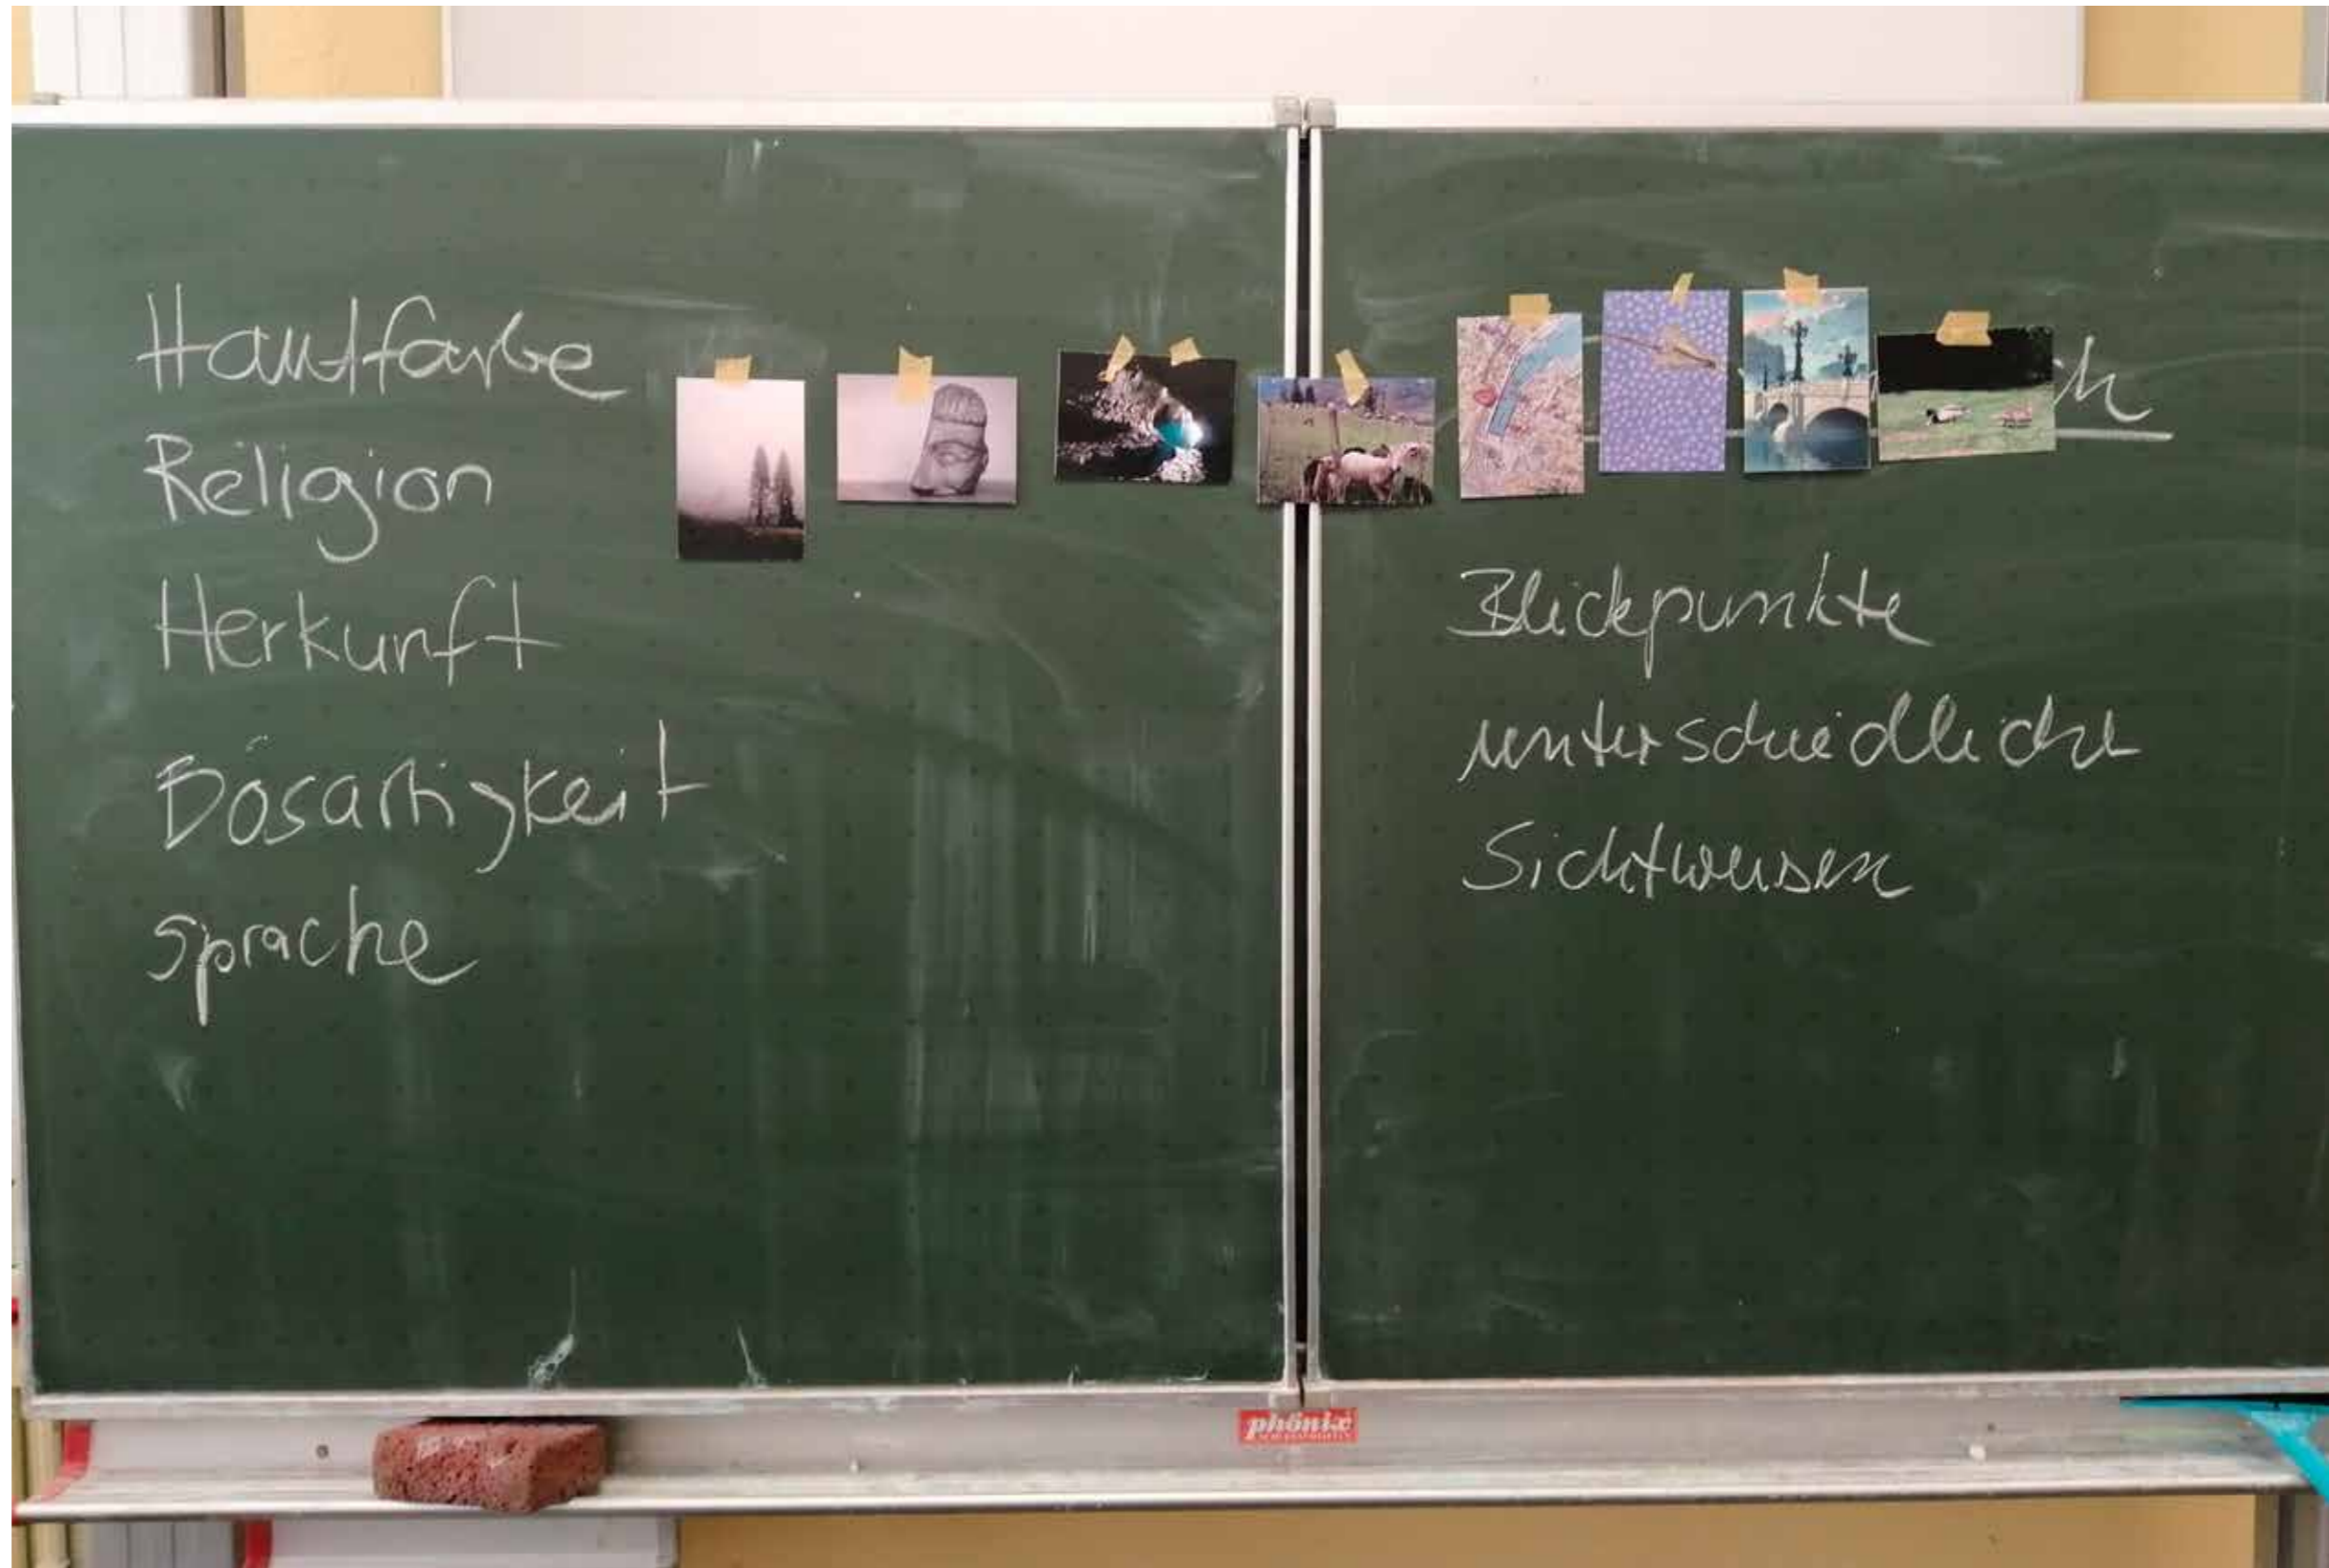 Hautfarbe
Religion
Herkunft
Bösartigkeit
Sprache
Blickpunkte
unterschiedliche
Sichtweisen
phönix